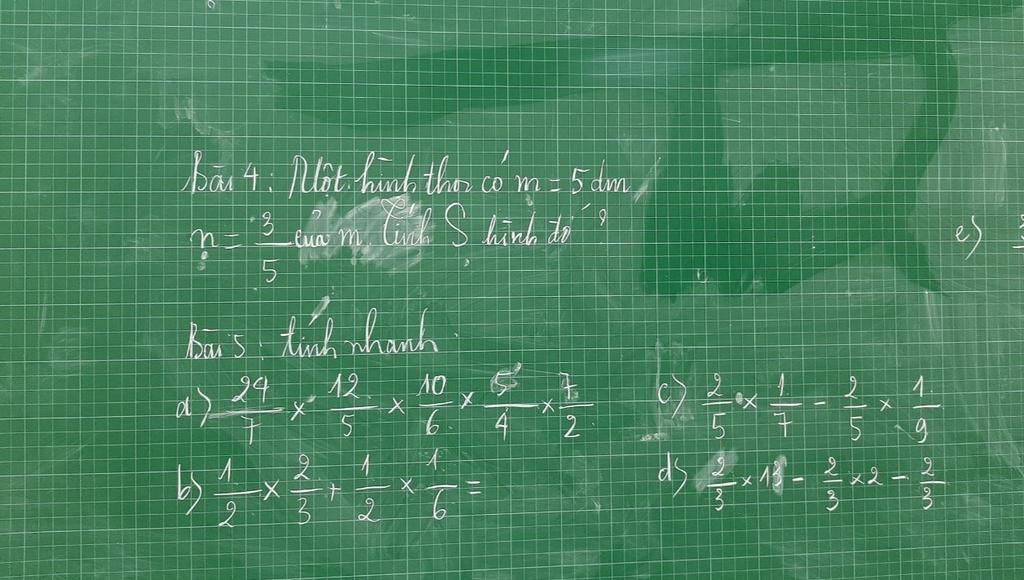 Bài 4: Một hình thoi có m = 5 dm
n = 3/5 của m. Tính S hình đó?
Bài 5: tính nhanh.
a) 24/7 × 12/5 × 10/6 × 5/4 × 7/2
b) 1/2 × 2/3 + 1/2 × 1/6 =
c) 2/5 × 1/7 - 2/5 × 1/9
d) 2/3 × 13 - 2/3 × 2 - 2/3
e)